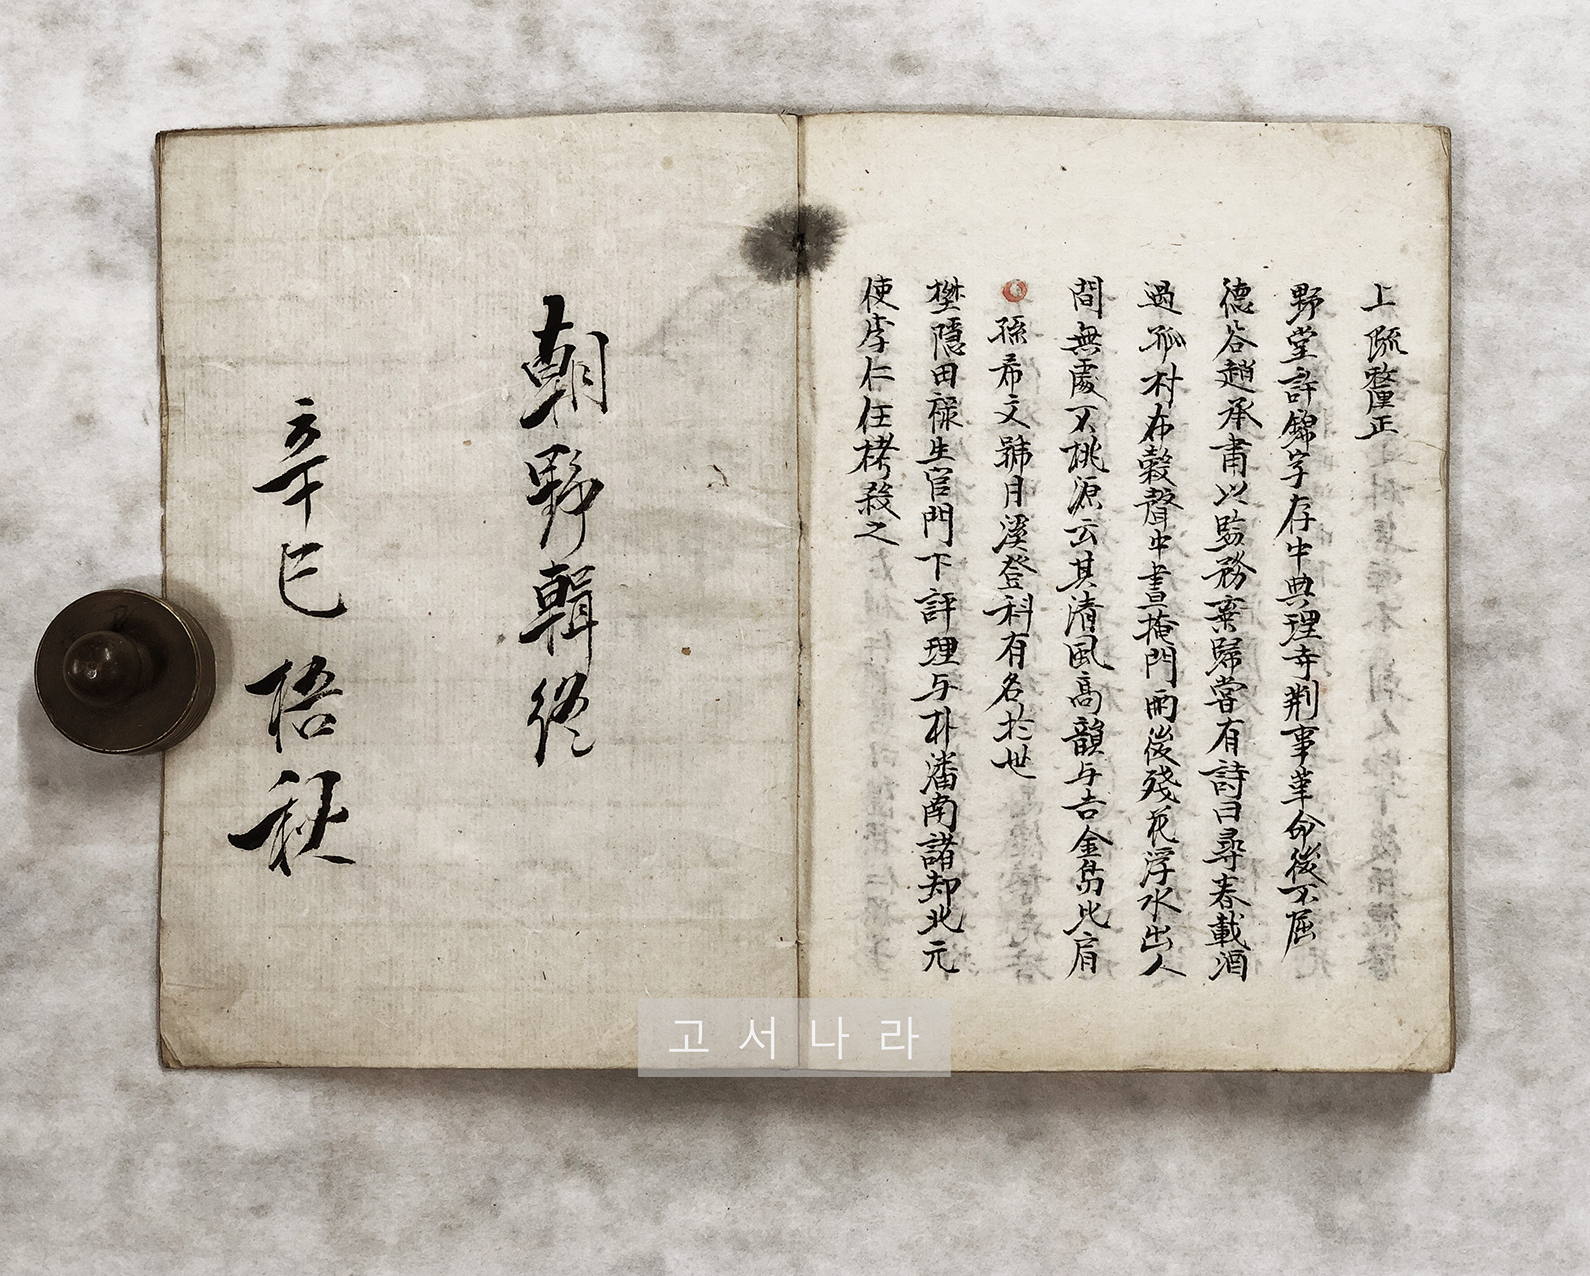 上疏釐正
野堂許錦字存中典理寺判事革命後不屈
德谷趙承肅以監務棄歸嘗有詩曰尋春載酒
過孤村布穀聲中晝掩門雨後殘花浮水出人
間無處不桃源云其清風高韻与吉金岛比肩
孫希文號月溪登科有名於世
樊隱田祿生官門下評理与朴潘南諸却北元
使李仁任栲殺之
朝野輯終
辛巳梧秋
고서나라